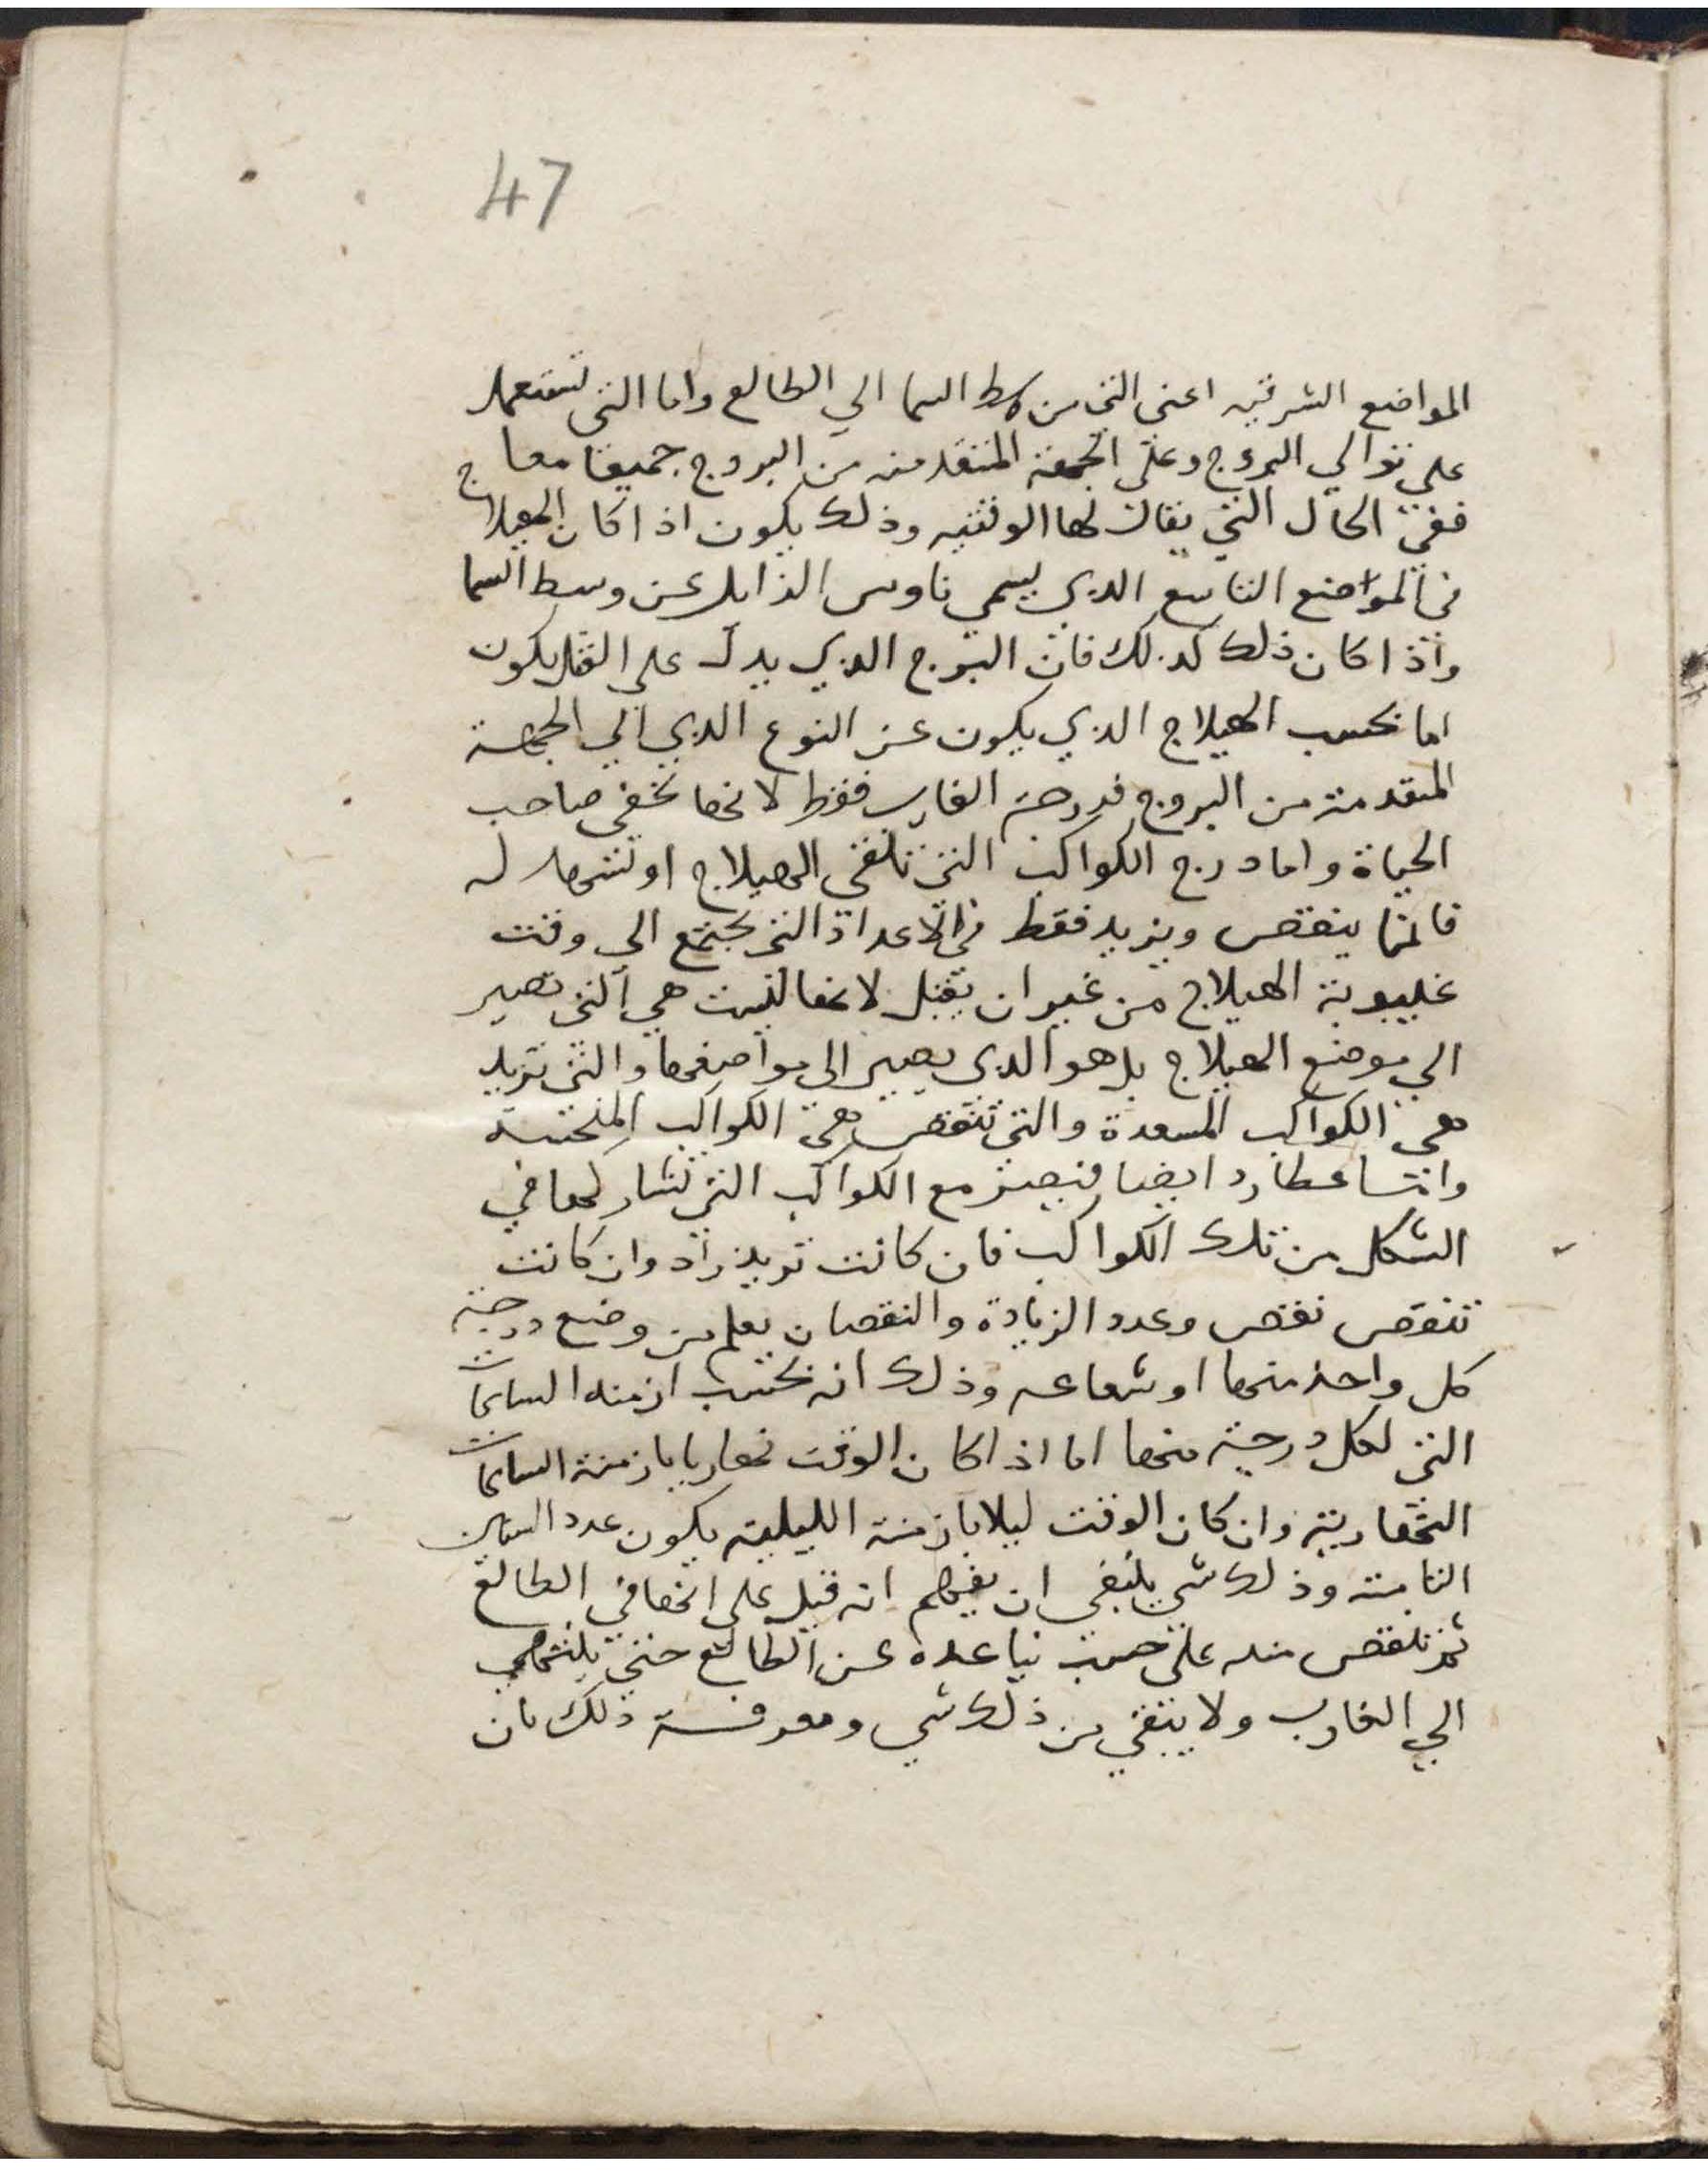 47
المواضع الشرقيه اعنى التى من وسط السما الي الطالع واما التى تستعمل
علي توالي البروج وعلى الجهة المتقدمة من البروج جميعا معا
ففي الحال التي يقال لها الوتتيه وذلك يكون اذا كان الهيلاج
في المواضع التاسع الدي يسمي ناوس الزايل عن وسط السما
واذا كان ذلك كدلك فان البرج الدي يدل علي القتل يكون
اما بحسب الهيلاج الدي يكون عن النوع الدي الي الجهة
المتقدمة من البروج فدرجة الغارب فقط لانها تخفى صاحب
الحياة واما درج الكواكب التى تلقى الهيلاج او تشهد له
فانما ينقص ويزيد فقط في الاعداد التى يجتمع الى وقت
غيبوبة الهيلاج من غير ان يقتل لانها ليست هي التى تصير
الي موضع الهيلاج بل هو الدى يصير الى مواضعها والتى تزيد
هى الكواكب المسعدة والتى تنقص هى الكواكب المنحسة
وانسا عطارد ايضا فيصير مع الكواكب التي تشاركها في
الشكل من تلك الكواكب فان كانت تزيد زاد وان كانت
تنقص نقص وعدد الزيادة والنقصان يعلم من وضع درجة
كل واحد منها او شعاعه وذلك انه نحسب ازمنه الساعات
التى لكل درجة منها اما اذا كان الوقت نهاريا بازمنة الساعات
النهارية وان كان الوقت ليلا بازمنة الليلية يكون عدد السنين
التامة وذلك شي ينبغى ان يفهم انه قيل على انها في الطالع
ثم تنقص منه على حسب تباعده عن الطالع حتى ينتهي
الي الغارب ولا يبقي من ذلك شي ومعرفة ذلك بان